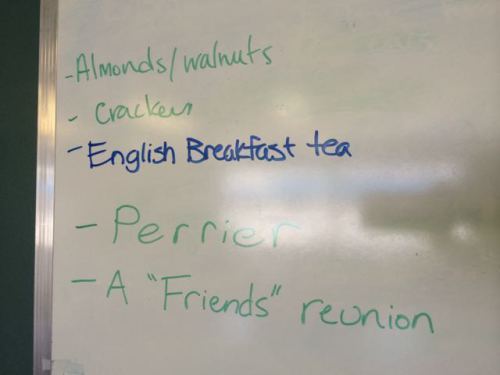 -Almonds/walnuts
- Crackers
- English Breakfast tea
- Perrier
- A "Friends" reunion